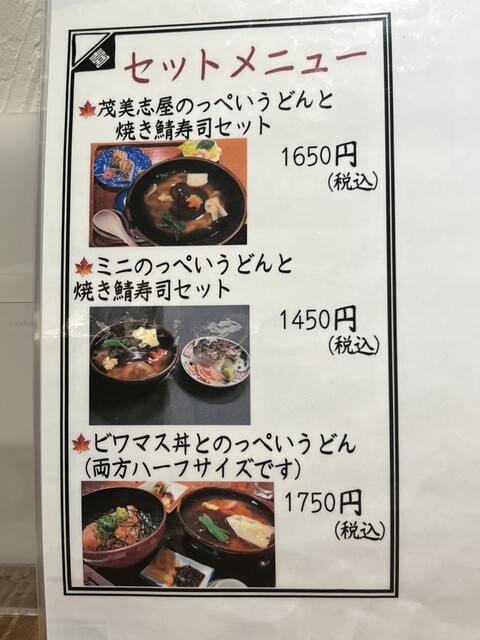 セットメニュー
茂美志屋のっぺいうどんと
焼き鯖寿司セット
1650円
(税込)
ミニのっぺいうどんと
焼き鯖寿司セット
1450円
(税込)
ビワマス丼とのっぺいうどん
(両方ハーフサイズです)
1750円
(税込)